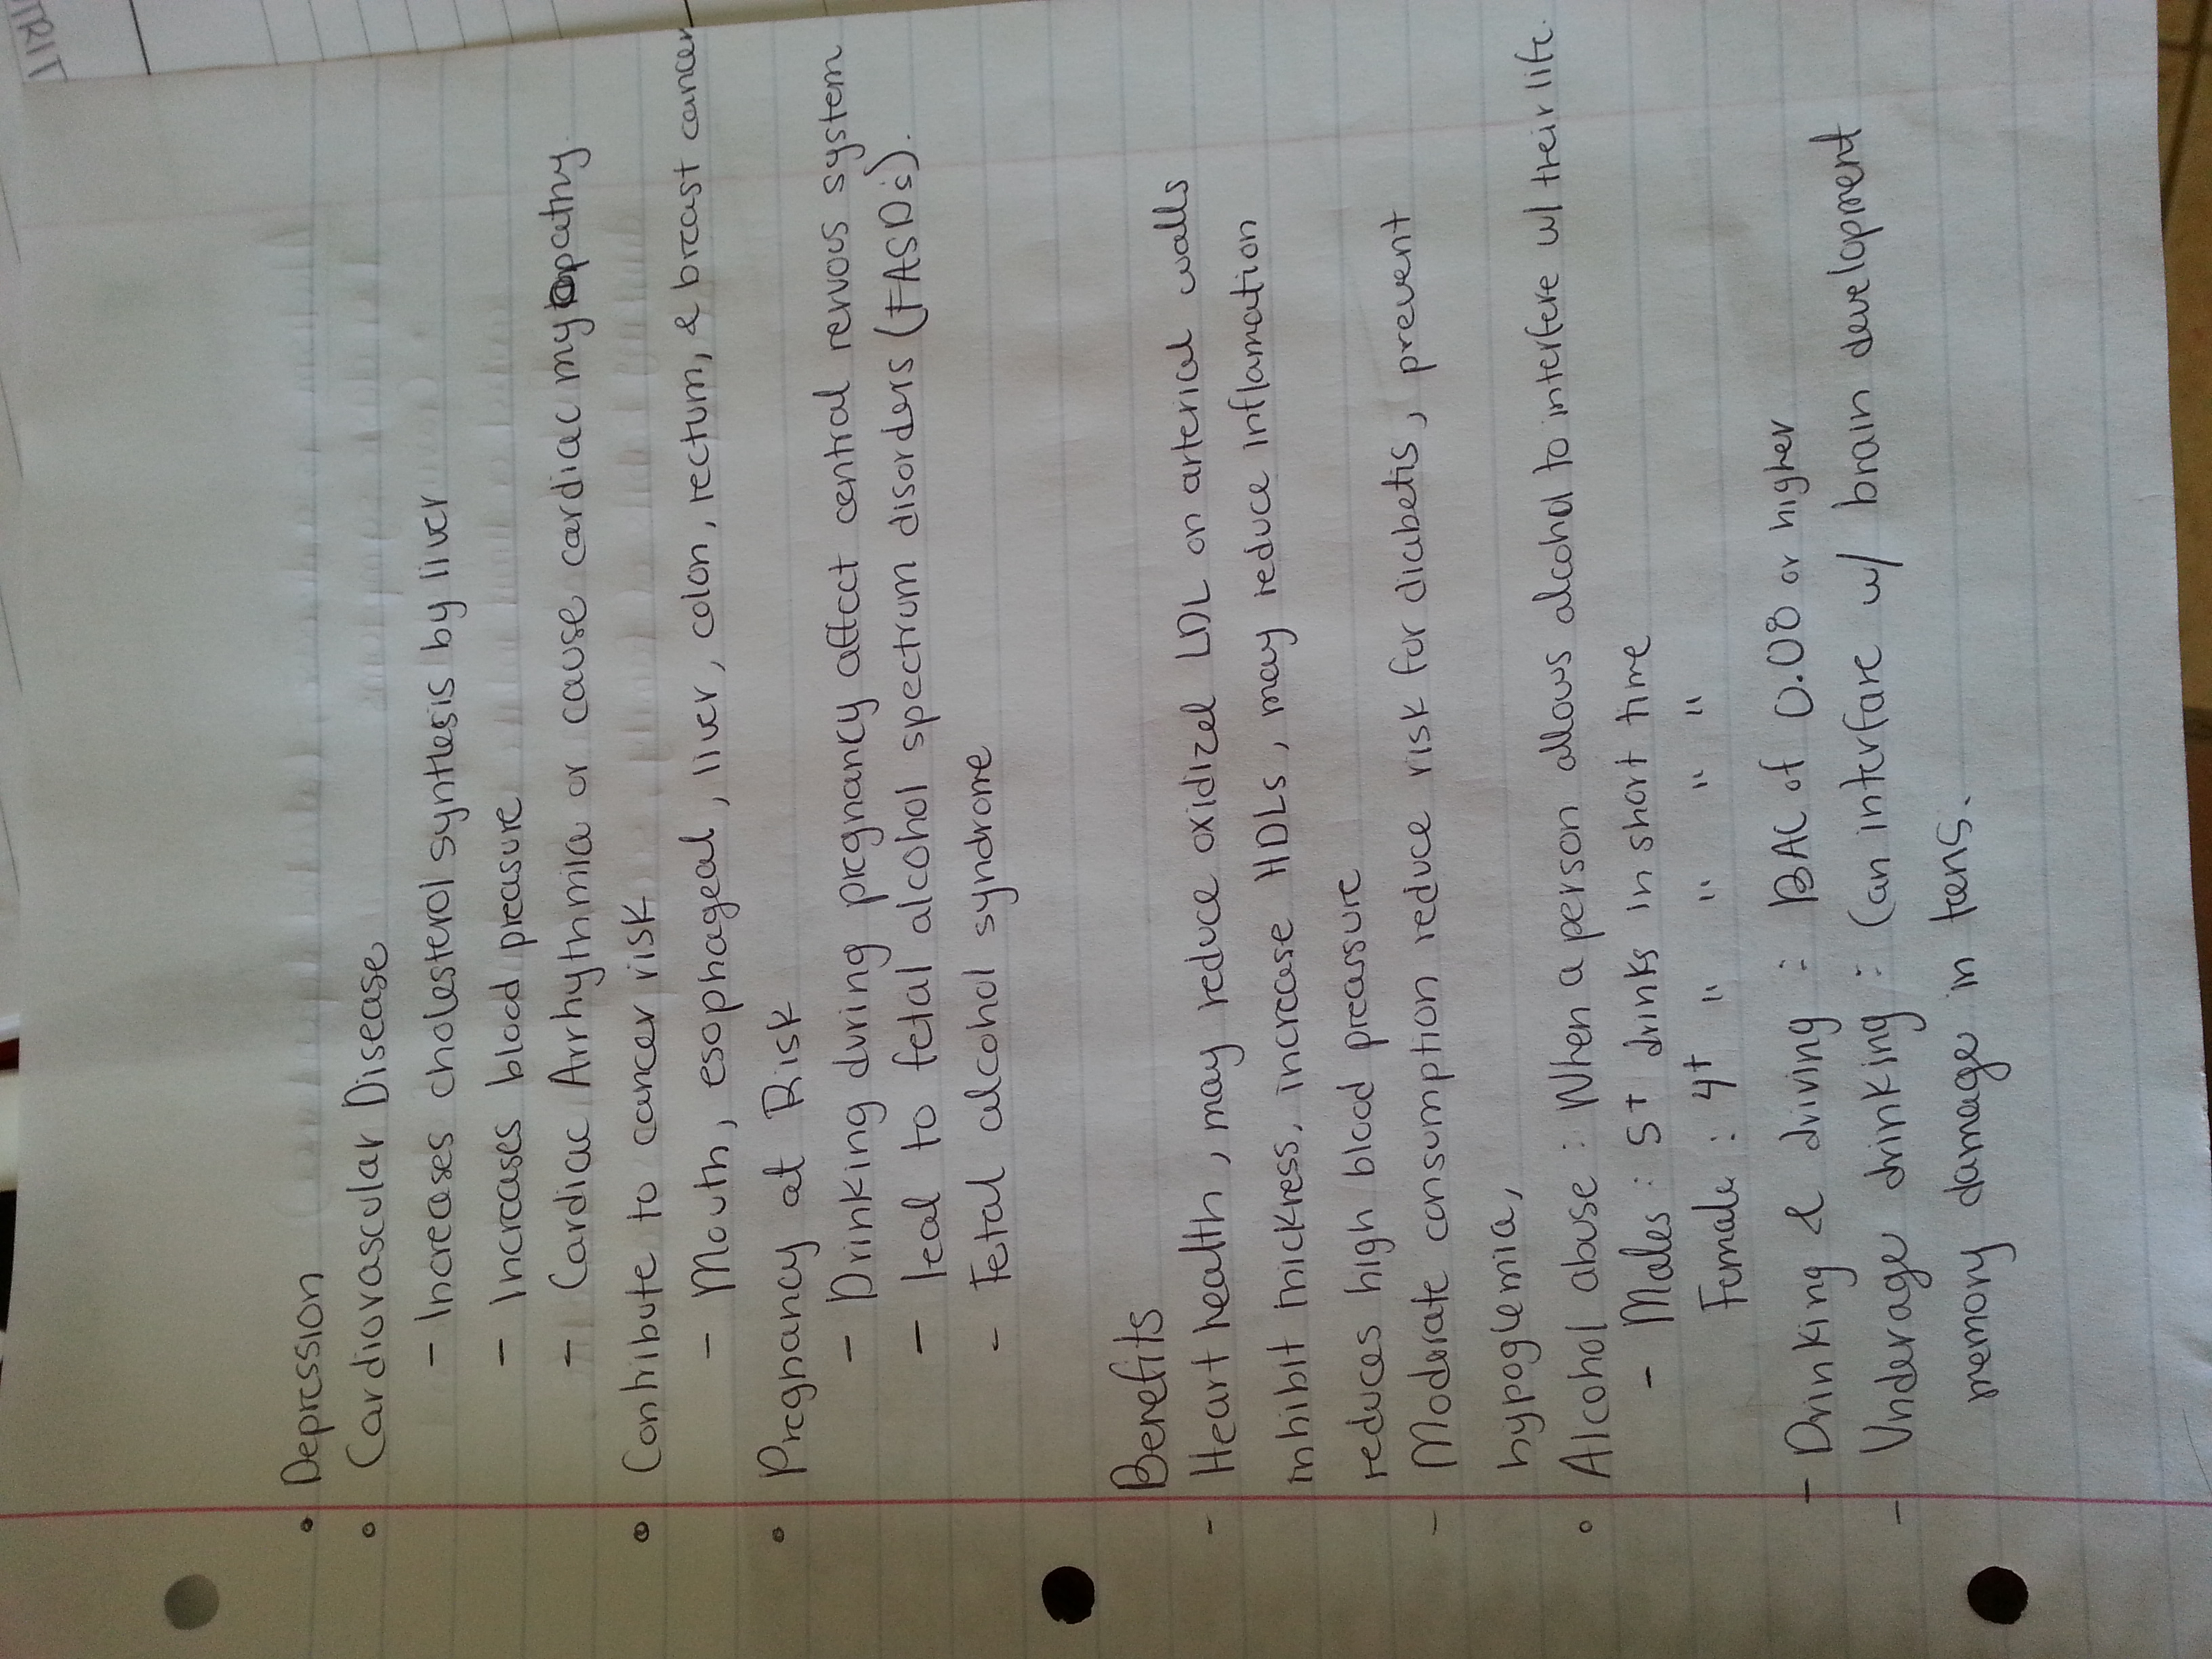 • Depression
• Cardiovascular Disease
- Increases cholesterol synthesis by liver
- Increases blood preasure
- Cardiac Arrhythmia or cause cardiac myopathy.
• Contribute to cancer risk
- Mouth, esophageal, liver, colon, rectum, & breast cancer
• Pregnancy at Risk
- Drinking during pregnancy affect central nervous system
- lead to fetal alcohol spectrum disorders (FASD's).
- Fetal alcohol syndrome
Benefits
- Heart health, may reduce oxidized LDL on arterial walls
inhibit thickness, increase HDLs, may reduce inflamation
reduces high blood preassure
- Moderate consumption reduce risk for diabetis, prevent
hypoglemia,
• Alcohol abuse: When a person allows alcohol to interfere w/ their life.
- Males: 5+ drinks in short time
Female: 4+ " " " "
- Drinking & driving: BAC of 0.08 or higher
- Underage drinking: Can interfare w/ brain development
memory damage in tens.